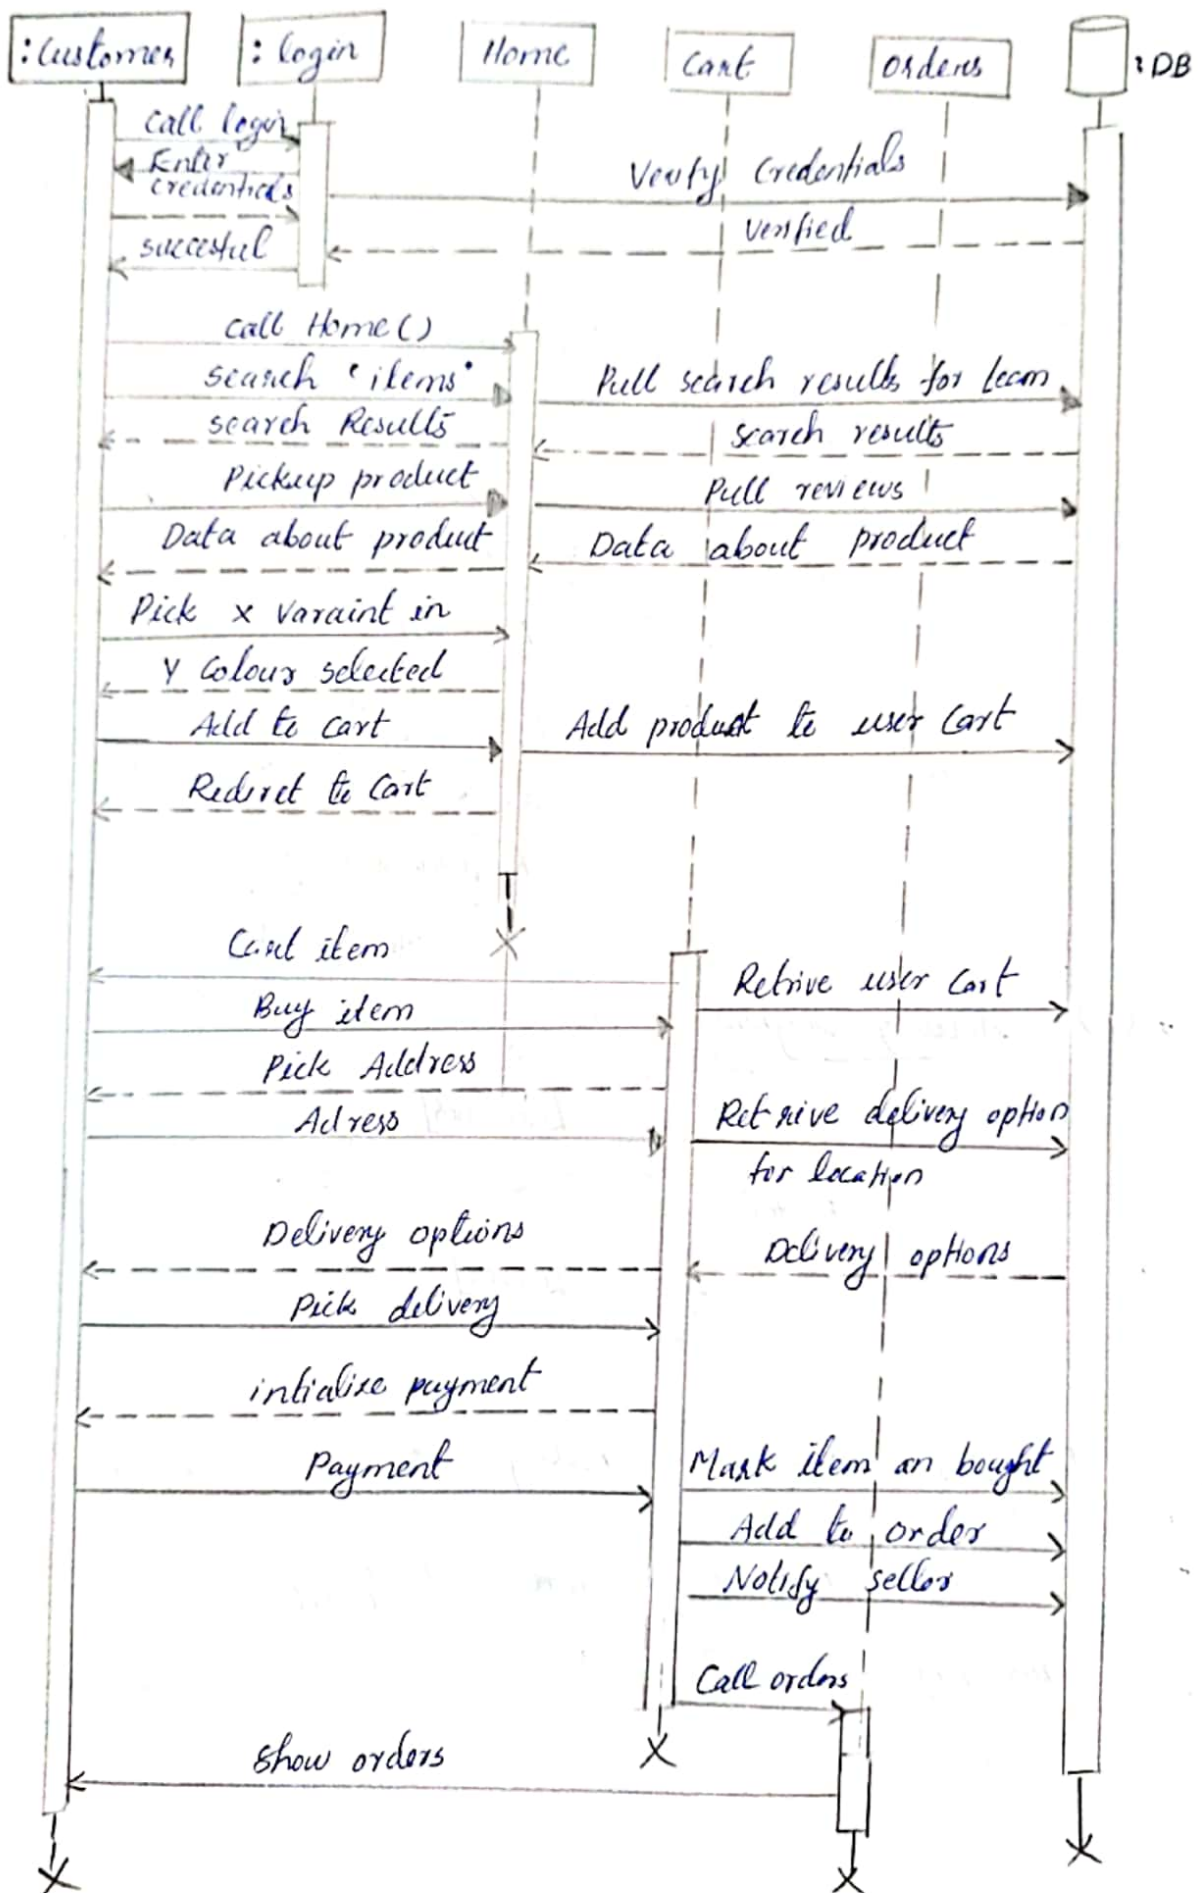 :Customer
: login
Home
Cart
Orders
:DB
call login
Enter
credentials
Verify Credentials
Verified
succesful
call Home()
search 'items'
Pull search results for
search Results
search results
Pickup product
Pull reviews
Data about product
Data about product
Pick x Varaint in
Y Colour selected
Add to cart
Add product to user Cart
Redirct to Cart
Cart item
Retrive user Cart
Buy item
Pick Address
Adress
Retrive delivery option
for location
Delivery options
Delivery options
Pick delivery
intialise payment
Payment
Mark item an bought
Add to order
Notify seller
Call orders
Show orders